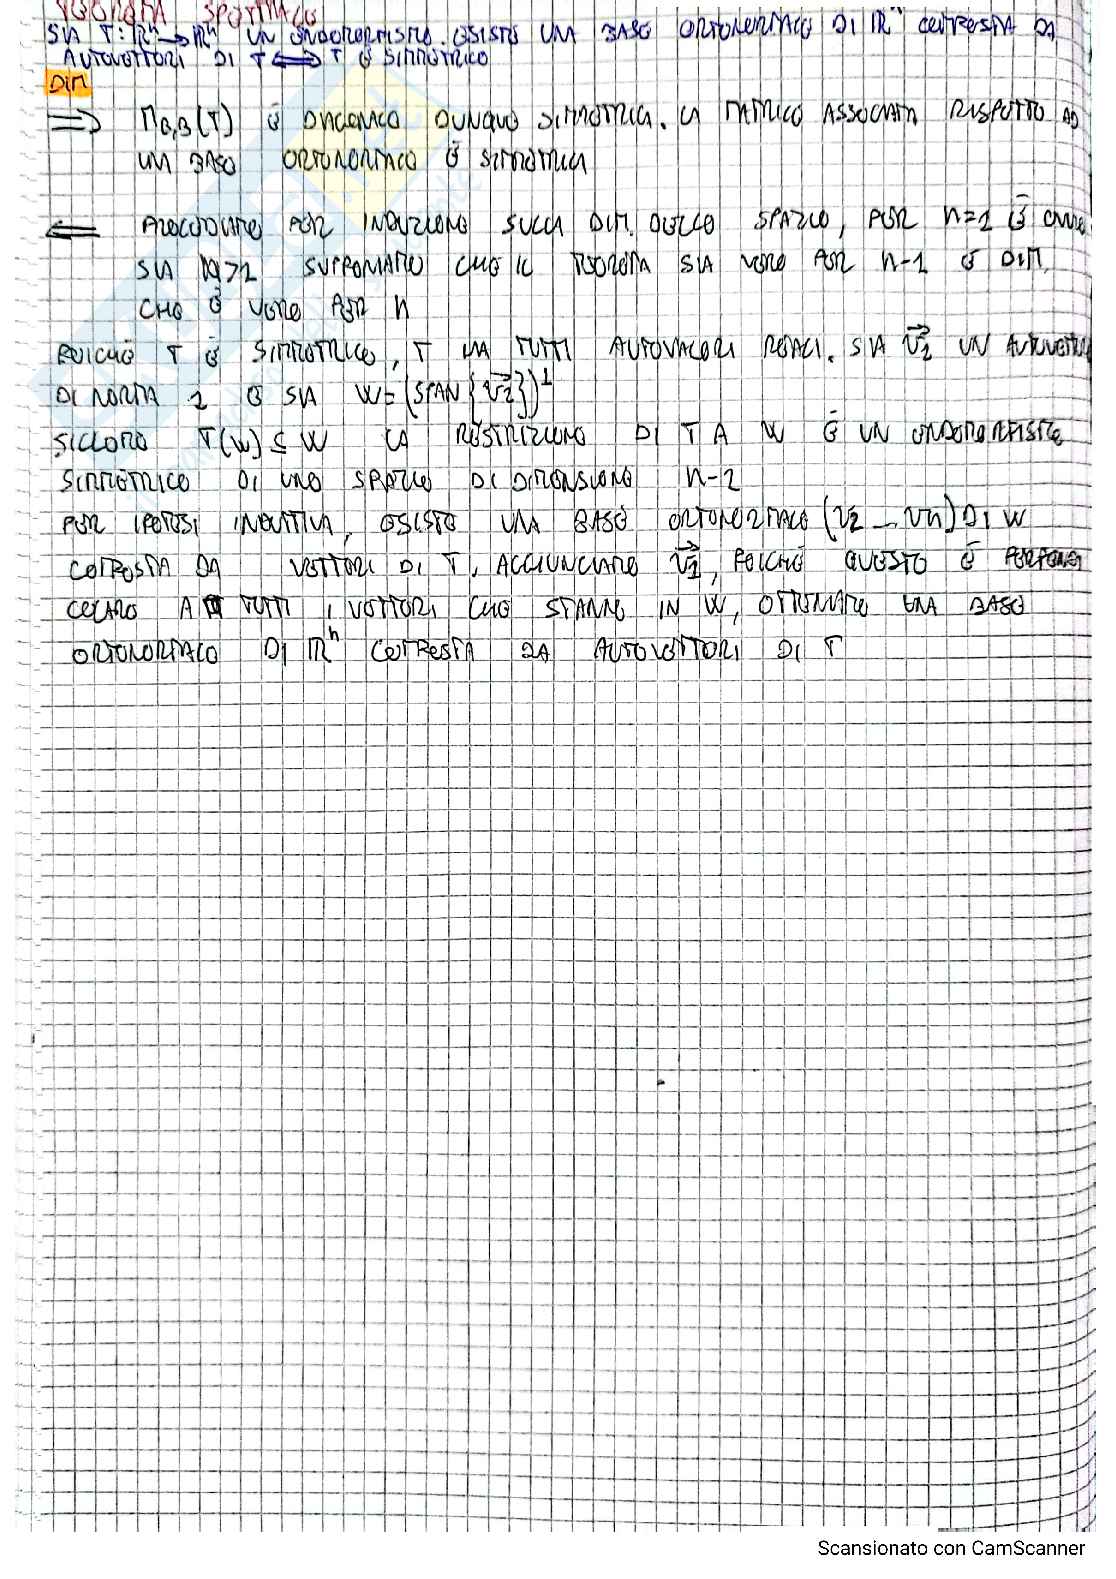 TEOREMA SPETTRALE
SIA T: ℝⁿ → ℝⁿ UN ENDOMORFISMO. ESISTE UNA BASE ORTONORMALE DI ℝⁿ COMPOSTA DA
AUTOVETTORI DI T ⟺ T È SIMMETRICO
DIM
⟹ M_B,B(T) È DIAGONALE DUNQUE SIMMETRICA. LA MATRICE ASSOCIATA RISPETTO AD
UNA BASE ORTONORMALE È SIMMETRICA
⟸ PROCEDIAMO PER INDUZIONE SULLA DIM. DELLO SPAZIO, PER n=1 È
SIA n>1 SUPPONIAMO CHE IL TEOREMA SIA VERO PER n-1 E DIM.
CHE È VERO PER n
POICHÉ T È SIMMETRICO, T HA TUTTI AUTOVALORI REALI. SIA v⃗1 UN AUTOVETTORE
DI NORMA 1 E SIA W=(SPAN{v⃗1})⊥
SICCOME T(W) ⊆ W LA RESTRIZIONE DI T A W È UN ENDOMORFISMO
SIMMETRICO DI UNO SPAZIO DI DIMENSIONE n-1
PER IPOTESI INDUTTIVA, ESISTE UNA BASE ORTONORMALE (v2 _ vn) DI W
COMPOSTA DA VETTORI DI T. AGGIUNGIAMO v⃗1, POICHÉ QUESTO È PERPENDI
COLARE A TUTTI I VETTORI CHE STANNO IN W, OTTENIAMO UNA BASE
ORTONORMALE DI ℝⁿ COMPOSTA DA AUTOVETTORI DI T
Scansionato con CamScanner